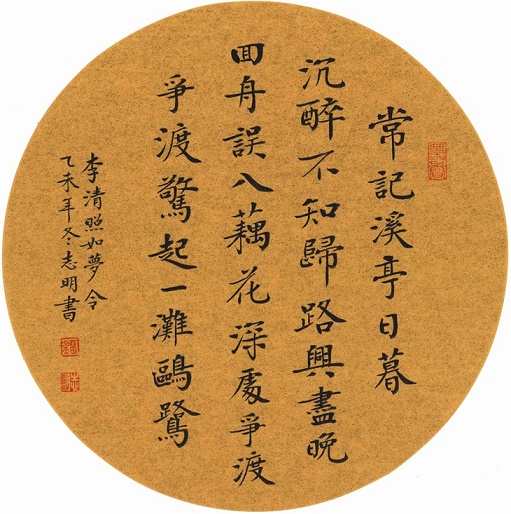 常記溪亭日暮
沉醉不知歸路興盡晚
回舟誤入藕花深處爭渡
爭渡驚起一灘鷗鷺
李清照如夢令
乙未年冬志明書